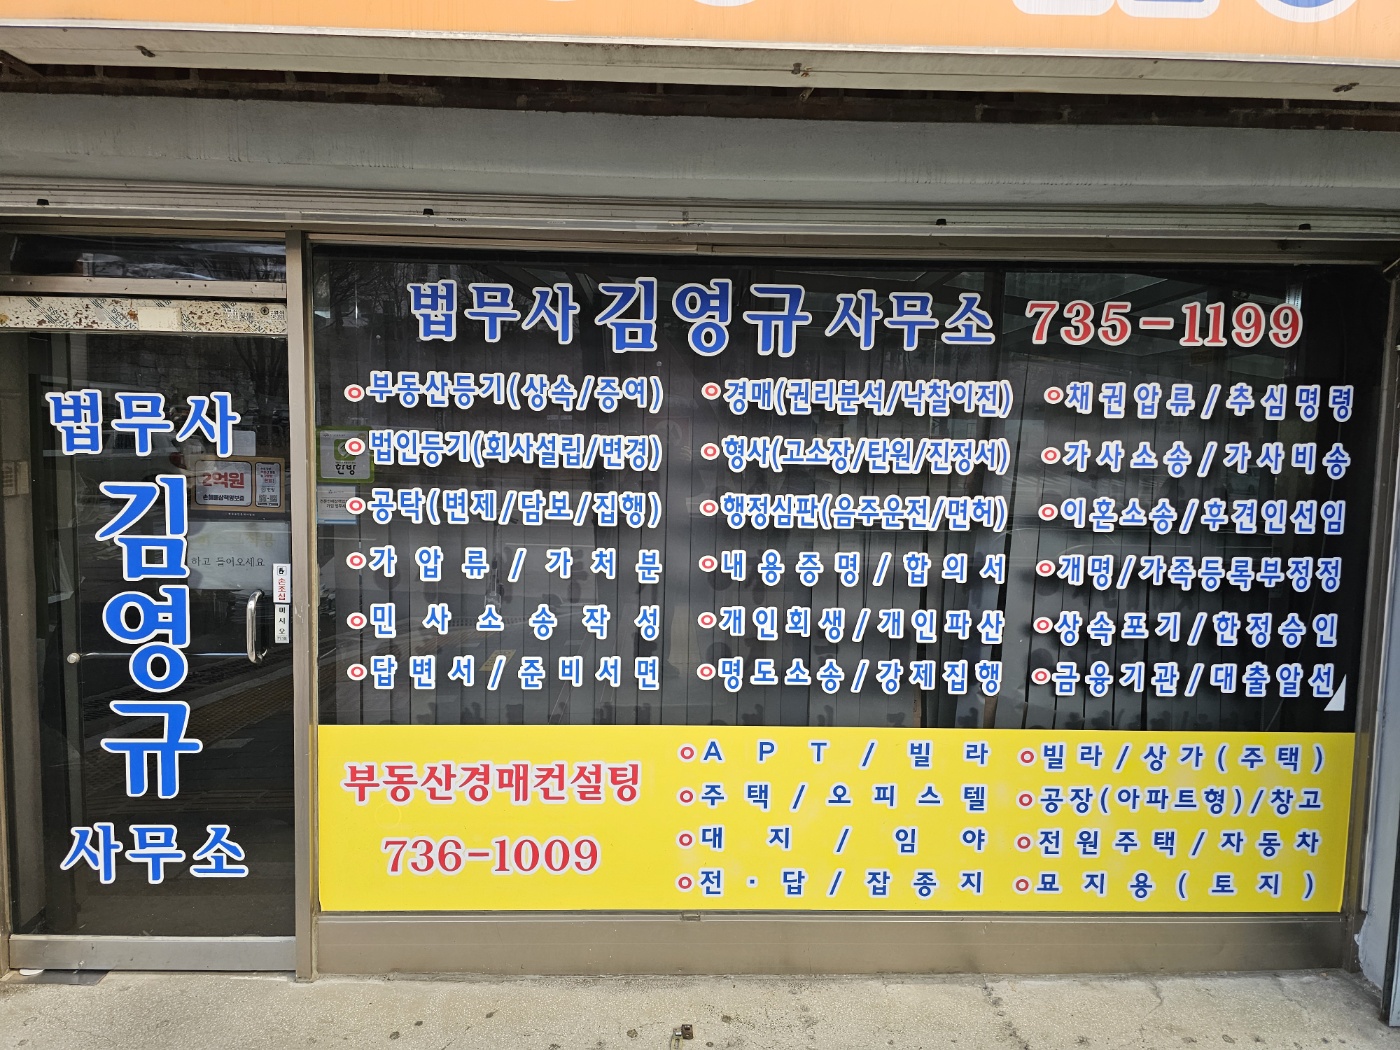 법무사 김영규 사무소 735-1199
부동산등기(상속/증여)
법인등기(회사설립/변경)
공탁(변제/담보/집행)
가압류/가처분
민사소송작성
답변서/준비서면
경매(권리분석/낙찰이전)
형사(고소장/탄원/진정서)
행정심판(음주운전/면허)
내용증명/합의서
개인회생/개인파산
명도소송/강제집행
채권압류/추심명령
가사소송/가사비송
이혼소송/후견인선임
개명/가족등록부정정
상속포기/한정승인
금융기관/대출알선
부동산경매컨설팅
736-1009
APT/빌라
주택/오피스텔
대지/임야
전·답/잡종지
빌라/상가(주택)
공장(아파트형)/창고
전원주택/자동차
묘지용(토지)
법무사
김영규
사무소
2억원
하고 들어오세요
손조심
미시오
한방